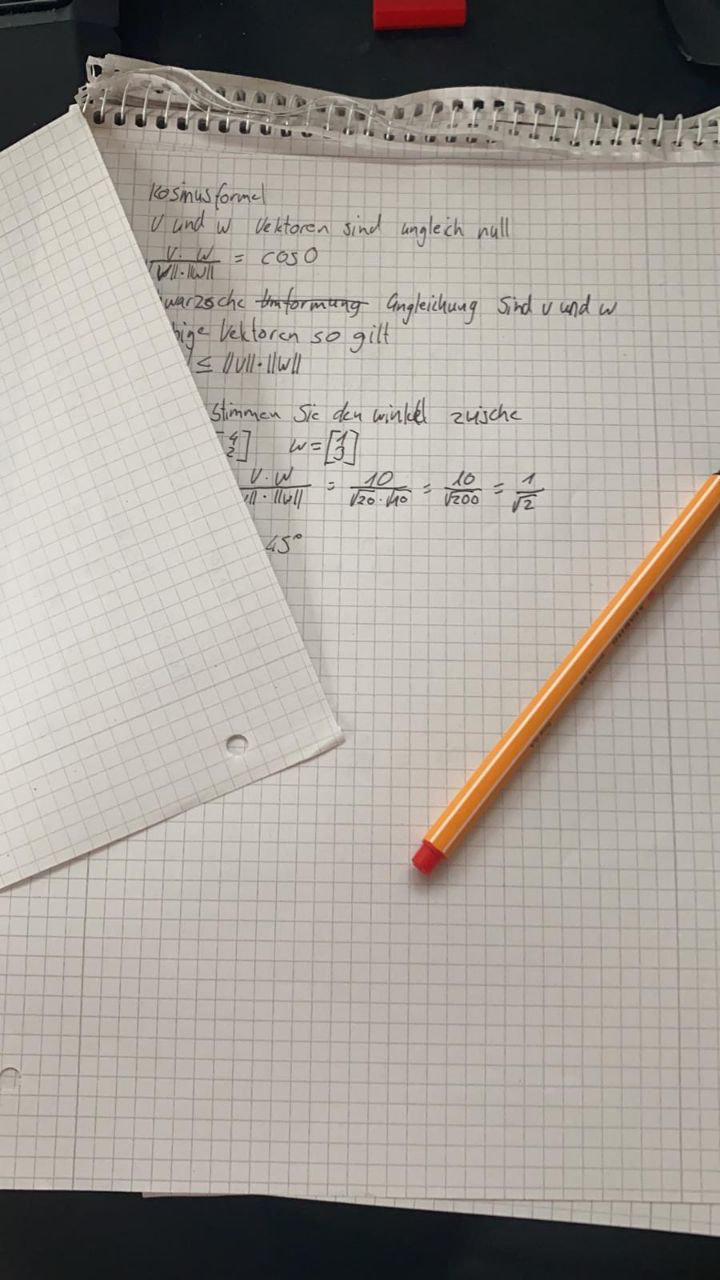 Kosinusformel
v und w Vektoren sind ungleich null
v · w / ||v|| · ||w|| = cos θ
warzsche Umformung Ungleichung sind v und w
bige Vektoren so gilt
≤ ||v|| · ||w||
stimmen Sie den winkel zwische
[4 2] w = [1 3]
v · w / || · ||w|| = 10 / √20 · √10 = 10 / √200 = 1 / √2
45°